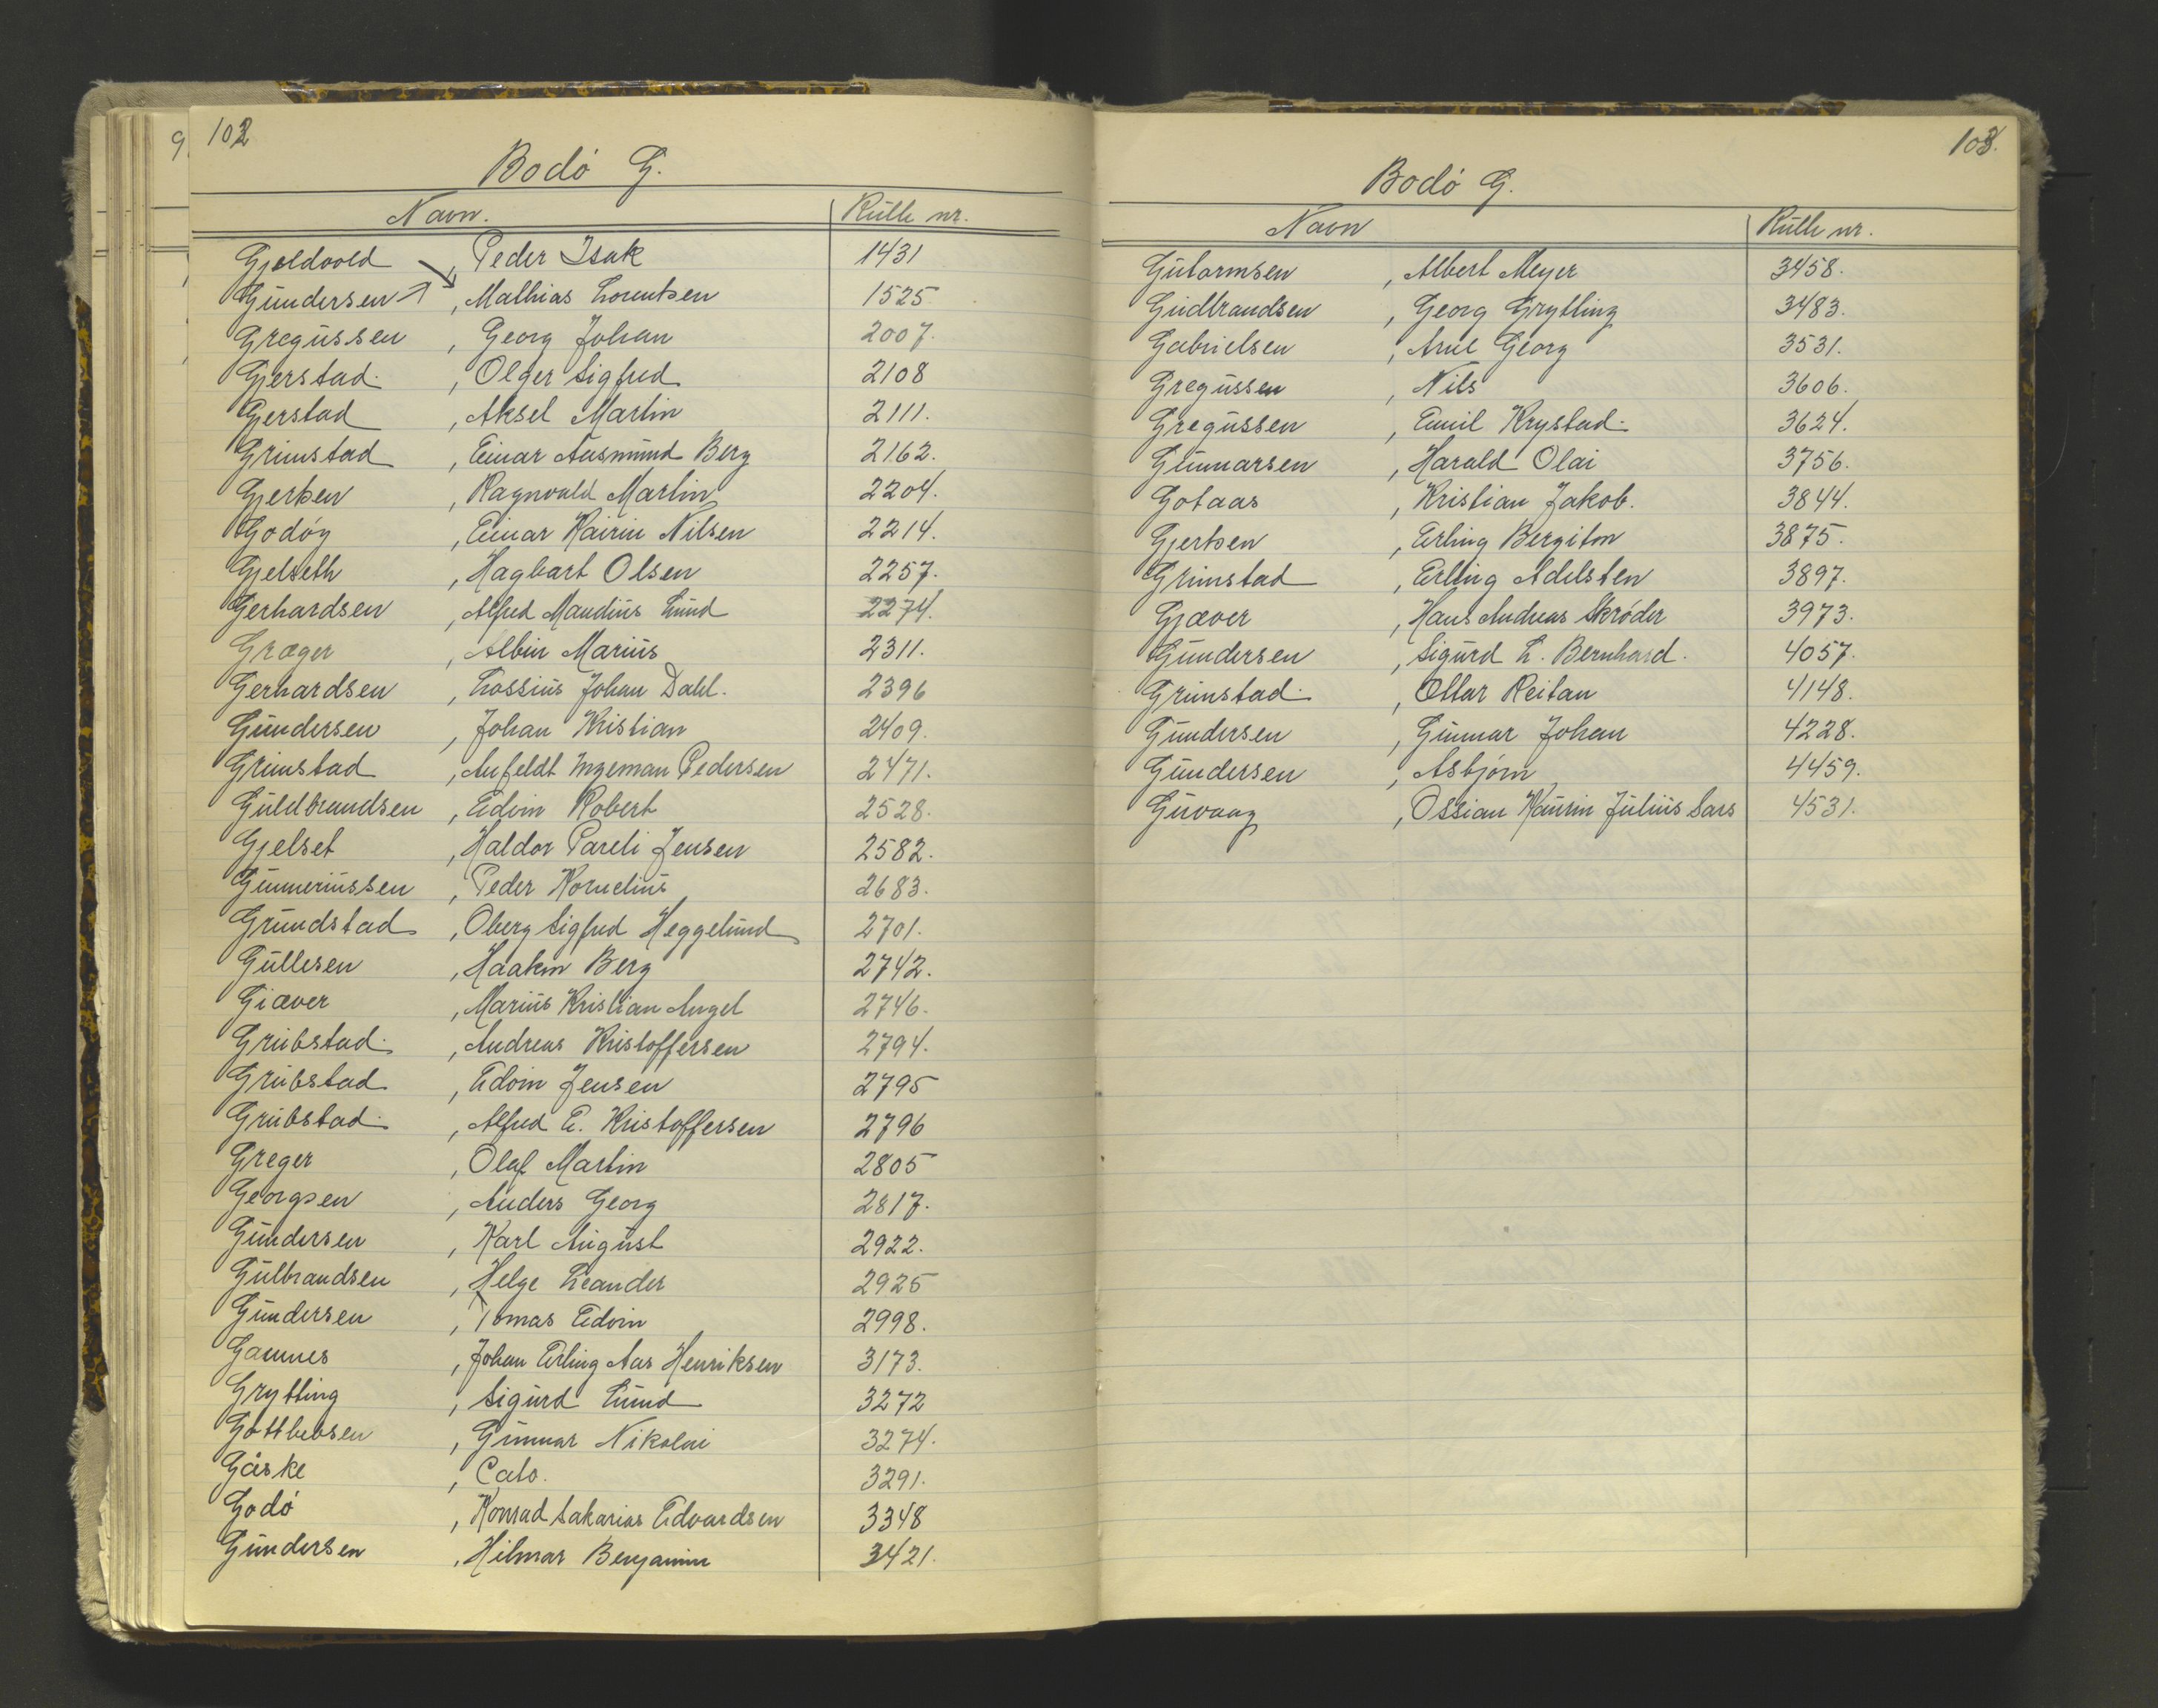 9
102
Bodó G.
Navn. Rulle nr.
Gjeldvold , Peder Isak 1431
Gundersen , Mathias Lorentsen 1525
Gregussen , Georg Johan 2007.
Gjerstad , Olger Sigfred 2108
Gjerstad , Aksel Martin 2111.
Grimstad , Einar Aasmund Berg 2162.
Gjertsen , Ragnvald Martin 2204.
Godóy , Einar Kaurin Nilsen 2214.
Gjelseth , Hagbart Olsen 2257.
Gerhardsen , Alfred Maudius Lund 2274.
Græger , Albin Marius 2311.
Gerhardsen , Lossius Johan Dahl. 2396
Gundersen , Johan Kristian 2409.
Grimstad , Anfeldt Ingeman Pedersen 2471.
Guldbrandsen , Edvin Robert 2528.
Gjelset , Haldor Pareli Jensen 2582.
Gunneriussen , Peder Kornelius 2683.
Grundstad , Oberg Sigfred Heggelund 2701.
Gullesen , Haakon Berg 2742.
Giæver , Marius Kristian Angel 2746.
Grubstad , Andreas Kristoffersen 2794.
Grubstad , Edvin Jensen 2795
Grubstad , Alfred E. Kristoffersen 2796
Greger , Olaf Martin 2805
Georgsen , Anders Georg 2817.
Gundersen , Karl August 2922.
Gulbrandsen , Helge Leander 2925
Gundersen , Tomas Edvin 2998.
Gamnes , Johan Erling Aas Henriksen 3173.
Grytting , Sigurd Lund 3272
Gottliebsen , Gunnar Nikolai 3274.
Gåske , Cato. 3291.
Godó , Konrad Sakarias Edvardsen 3348
Gundersen , Hilmar Benjamin 3421.
103.
Bodó G.
Navn Rulle nr.
Gutormsen , Albert Meyer 3458.
Gudbrandsen , Georg Grytting 3483.
Gabrielsen , Arne Georg 3531.
Gregussen , Nils 3606.
Gregussen , Emil Krystad 3624.
Gunnarsen , Harald Olai 3756.
Gotaas , Kristian Jakob. 3844.
Gjertsen , Erling Bergiton 3875.
Grimstad , Erling Adelsten 3897.
Gjæver , Hans Andreas Skróder 3973.
Gundersen , Sigurd L. Bernhard. 4057.
Grimstad , Ottar Reitan 4148.
Gundersen , Gunnar Johan 4228.
Gundersen , Asbjórn 4459.
Gurvaag , Ossian Kaurin Julius Sars 4531.